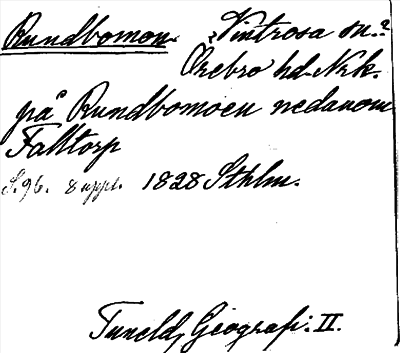 Rundbomon. Vintrosa sn.?
Örebro hd. Nrk.
på Rundbomoen nedanom
Falltorp
S. 96. 8 uppl. 1828 Sthlm.
Tuneld, Geografi. II.